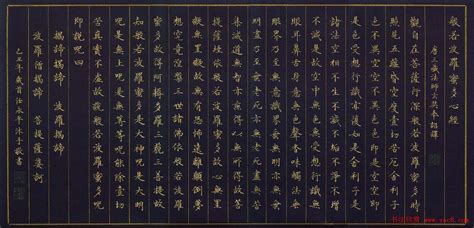 般若波羅蜜多心經
唐三藏法師玄奘奉詔譯
觀自在菩薩行深般若波羅蜜多時
照見五蘊皆空度壹切苦厄舍利子
色不異空空不異色色即是空空即
是色受想行識亦復如是舍利子是
諸法空相不生不滅不垢不淨不增
不減是故空中無色無受想行識無
眼耳鼻舌身意無色聲香味觸法無
眼界乃至無意識界無無明亦無無
明盡乃至無老死亦無老死盡無苦
集滅道無智亦無得以無所得故菩
提薩埵依般若波羅蜜多故心無罣
礙無罣礙故無有恐怖遠離顛倒夢
想究竟涅槃三世諸佛依般若波羅
蜜多故得阿耨多羅三藐三菩提故
知般若波羅蜜多是大神呪是大明
呪是無上呪是無等等呪能除壹切
苦真實不虛故說般若波羅蜜多呪
即說呪曰
揭諦揭諦 波羅揭諦
波羅僧揭諦 菩提薩婆訶
年歲首任永平沐手敬書
书法欣赏
www.yac8.com